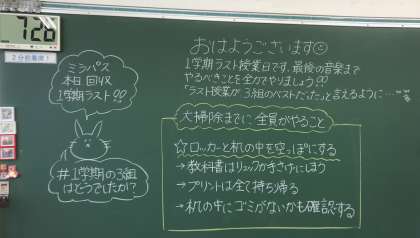 726
2分前着席!
ミラパス
本日回収
1学期ラスト!!
#1学期の3組
はどうでしたか?
おはようございます☺
1学期ラスト授業日です。最後の音楽まで
やるべきことを全力でやりましょう!!
「ラスト授業が3組のベストだった」と言えるように…
大掃除までに全員がやること
☆ロッカーと机の中を空っぽにする
→教科書はリュックか手さげにほう
→プリントは全て持ち帰る
→机の中にゴミがないかも確認する